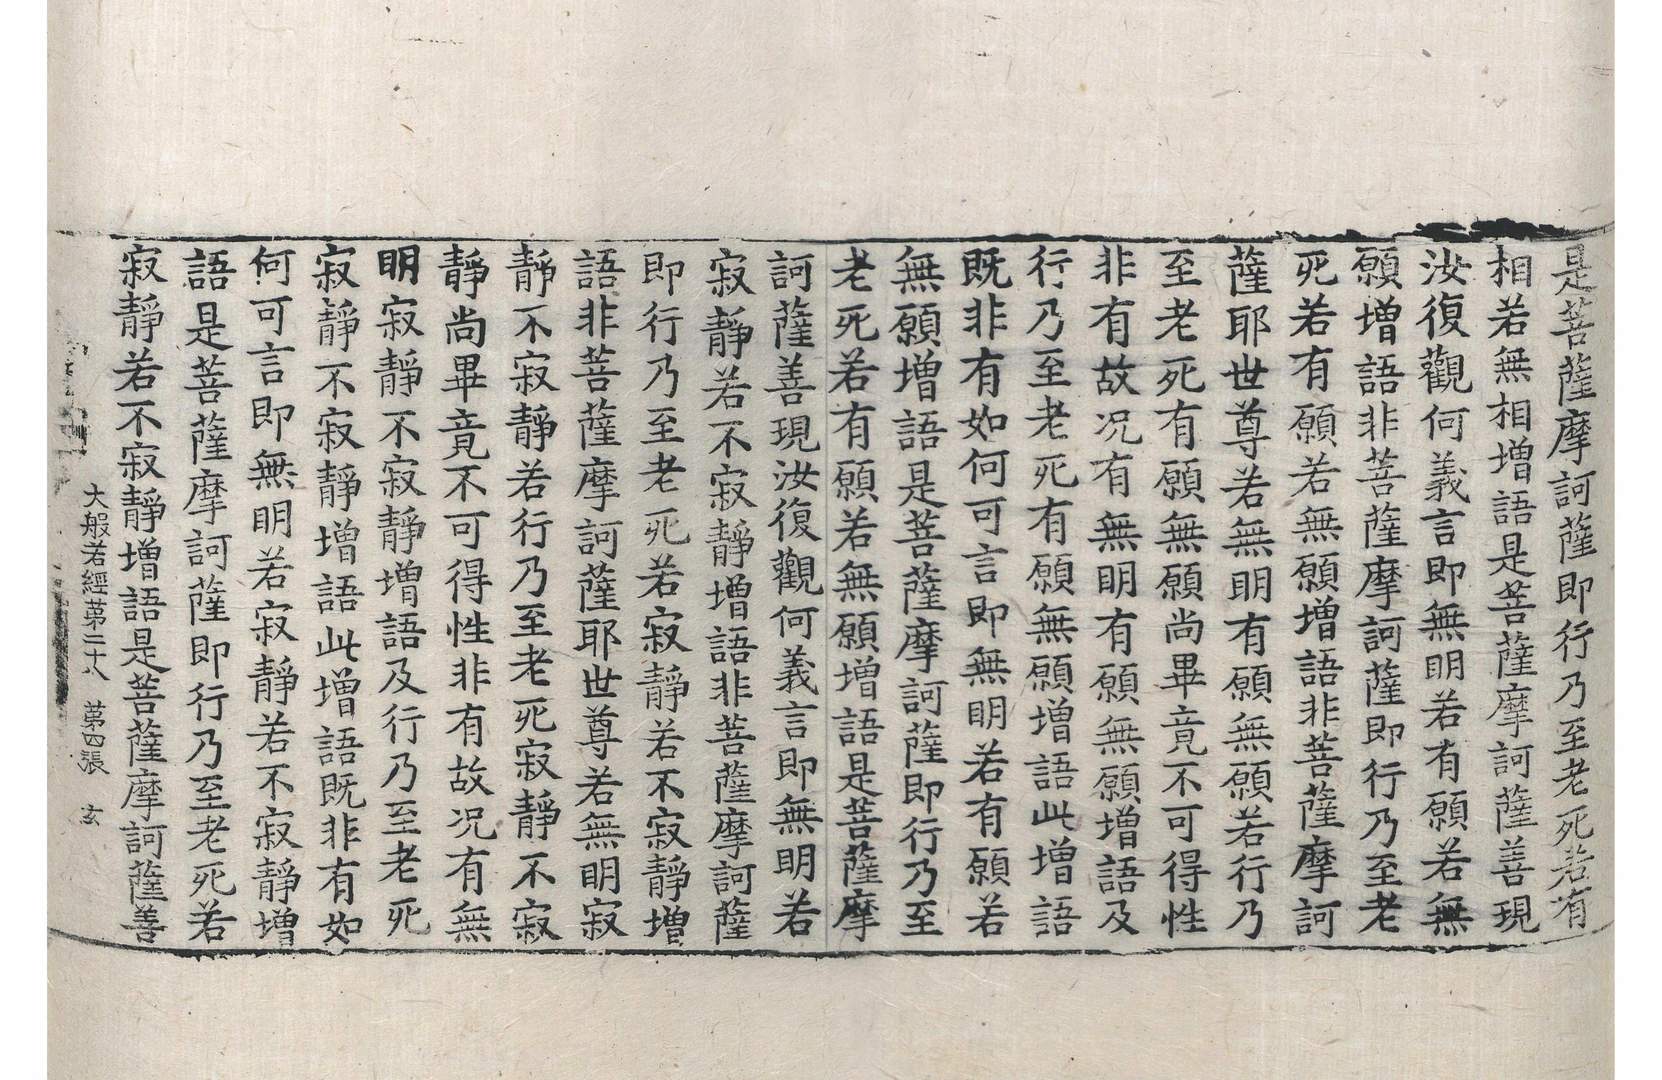 是菩薩摩訶薩即行乃至老死若有
相若無相增語是菩薩摩訶薩善現
汝復觀何義言即無眀若有願若無
願增語非菩薩摩訶薩即行乃至老
死若有願若無願增語非菩薩摩訶
薩耶世尊若無眀有願無願若行乃
至老死有願無願尚畢竟不可得性
非有故况有無眀有願無願增語及
行乃至老死有願無願增語此增語
既非有如何可言即無眀若有願若
無願增語是菩薩摩訶薩即行乃至
老死若有願若無願增語是菩薩摩
訶薩善現汝復觀何義言即無眀若
寂靜若不寂靜增語非菩薩摩訶薩
即行乃至老死若寂靜若不寂靜增
語非菩薩摩訶薩耶世尊若無眀寂
靜不寂靜若行乃至老死寂靜不寂
靜尚畢竟不可得性非有故况有無
眀寂靜不寂靜增語及行乃至老死
寂靜不寂靜增語此增語既非有如
何可言即無眀若寂靜若不寂靜增
語是菩薩摩訶薩即行乃至老死若
寂靜若不寂靜增語是菩薩摩訶薩善
大般若經第二十八 第四張 玄